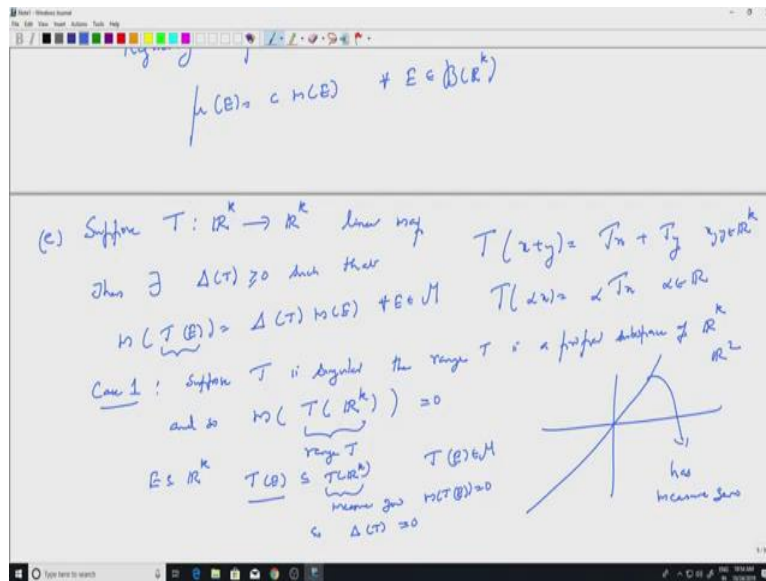 Note1 - Windows Journal
File Edit View Insert Actions Tools Help
μ(E) = c m(E) ∀ E ∈ B(ℝ^k)
(e) Suppose T : ℝ^k → ℝ^k linear map
T(x+y) = Tx + Ty x,y ∈ ℝ^k
Then ∃ Δ(T) ≥ 0 such that
T(αx) = α Tx α ∈ ℝ
m(T(E)) = Δ(T) m(E) ∀ E ∈ M
Case 1 : Suppose T is singular the range T is a proper subspace of ℝ^k
ℝ^2
and so m(T(ℝ^k)) = 0
range T
E ⊆ ℝ^k T(E) ⊆ T(ℝ^k) T(E) ∈ M
measure zero m(T(E)) = 0
so Δ(T) = 0
has
measure zero
Type here to search